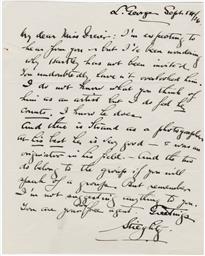 L. George Sept 14/16
My dear Miss Dreier: I'm expecting to
hear from you - but I've been wondering
why Hartley has not been invited.
You undoubtedly haven't overlooked him.
I do not know what you think of
him as an artist but I do feel he
counts. I know he does.
And there is Strand as a photographer
At his best he is very good - & was an
originator in his field - And he
do belong to the group if you will
speak of a group. But remember
I'm not suggesting anything to you.
You are your own agent. Greetings
Stieglitz